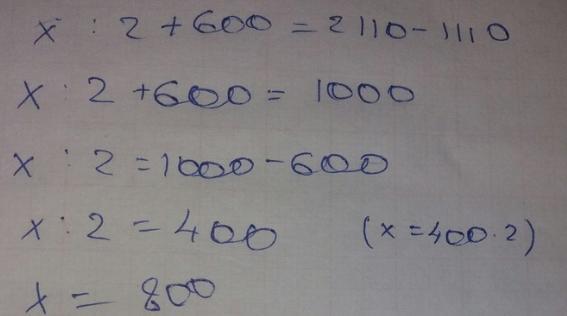 x : 2 + 600 = 2110 - 1110
x : 2 + 600 = 1000
x : 2 = 1000 - 600
x : 2 = 400 (x = 400 · 2)
x = 800